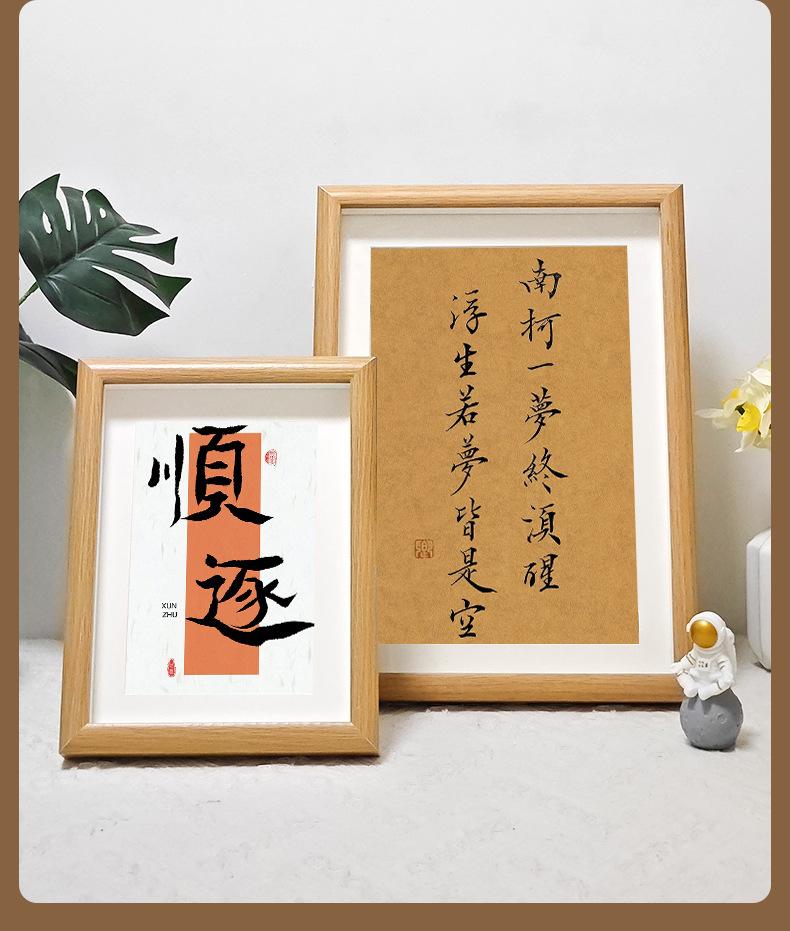 順
逐
XUN
ZHU
南柯一夢終須醒
浮生若夢皆是空